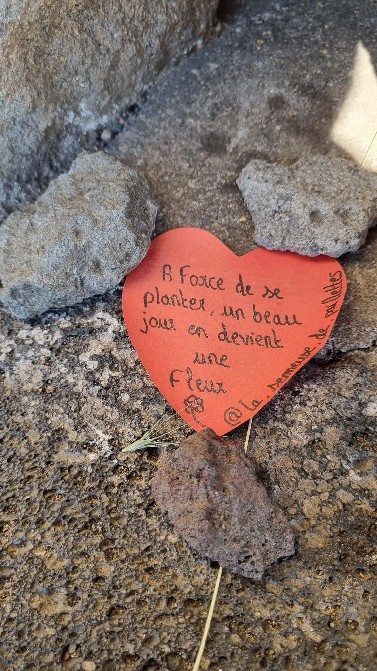 A Force de se
planter, un beau
jour on devient
une
Fleur
@la.semeuse.de.paillettes